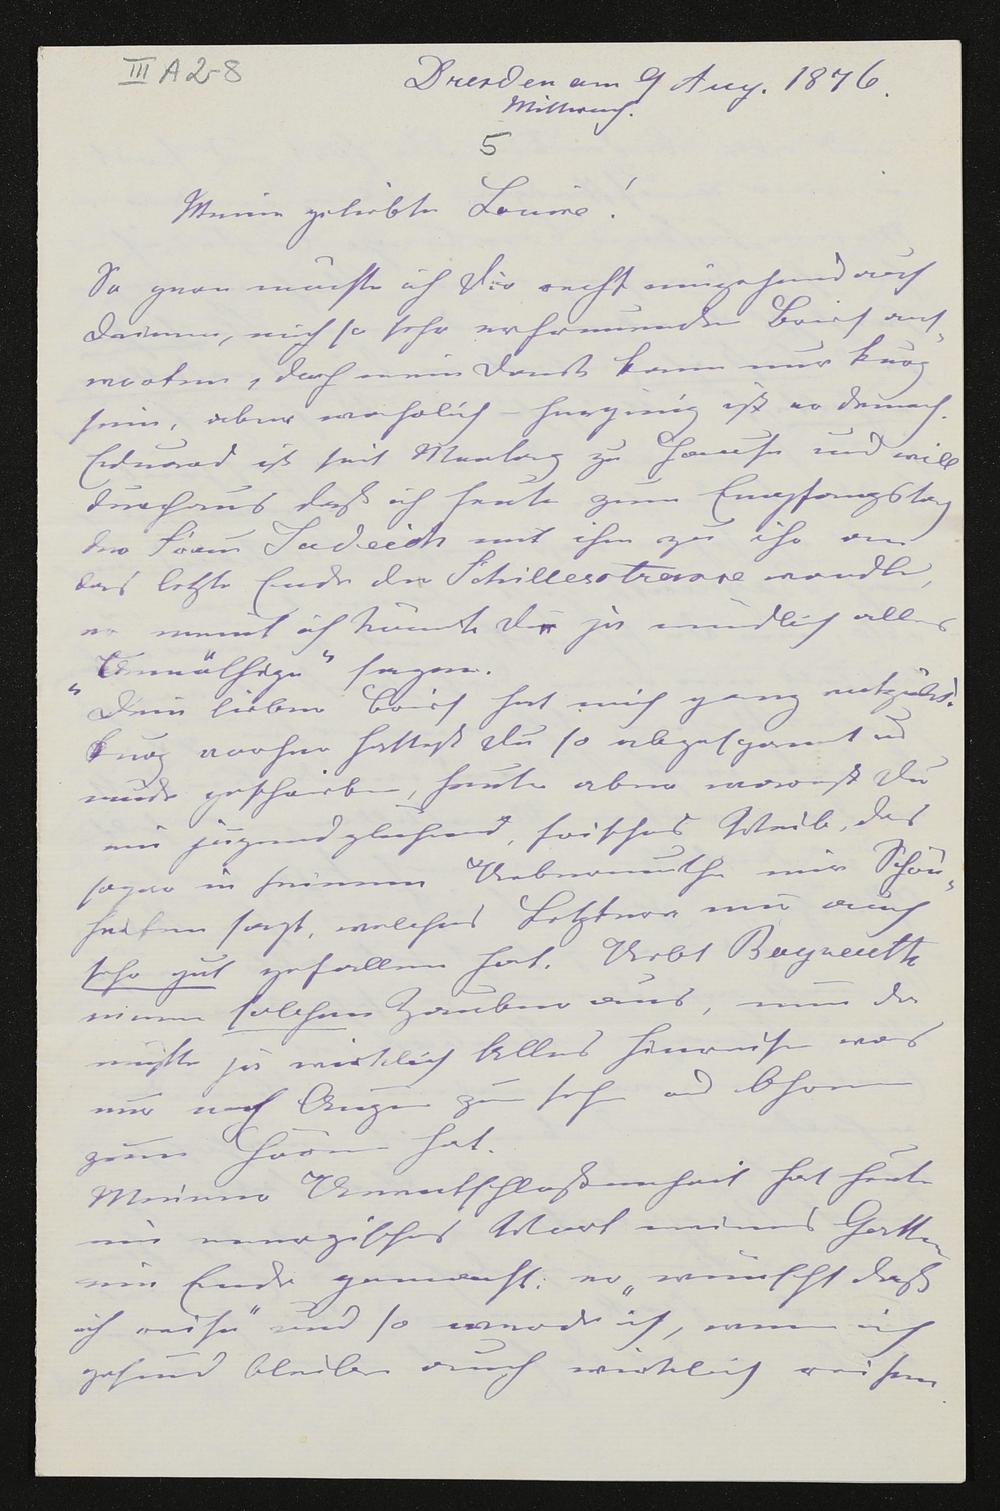 III A 2-8
Dresden am 9 Aug. 1876.
Mittwoch.
5
Meine geliebte Louise!
So gern möchte ich Dir recht eingehend auf
Deinen, mich so sehr erfreuenden Brief ant-
worten, doch mein Dank kann nur kurz
sein, aber wahrlich – herzinnig ist er dennoch.
Eduard ist seit Montag zu Hause und will
durchaus daß ich heute zum Empfangstag
der Frau Jadeich mit ihm zu ihr an
das letzte Ende der Schillerstrasse wandle,
er meint ich könnte Dir ja mündlich alles
"Unnöthige" sagen.
Dein lieber Brief hat mich ganz entzückt.
kurz vorher hattest Du so abgespannt u
müde geschrieben, heute aber warst Du
ein jugendglühend, frisches Weib, das
sogar in seinem Uebermuthe mir Schön-
heiten sagt, welches Letztere mir auch
sehr gut gefallen hat. Uebt Bayreuth
einen solchen Zauber aus, nun da
müßte ja wirklich Alles hinreisen was
nur noch Augen zum sehn und Ohren
zum Hören hat.
Meiner Unentschloßenheit hat heute
ein energisches Wort meines Gatten
ein Ende gemacht: er "wünscht daß
ich reise" und so werde ich, wenn ich
gesund bleibe auch wirklich reisen.